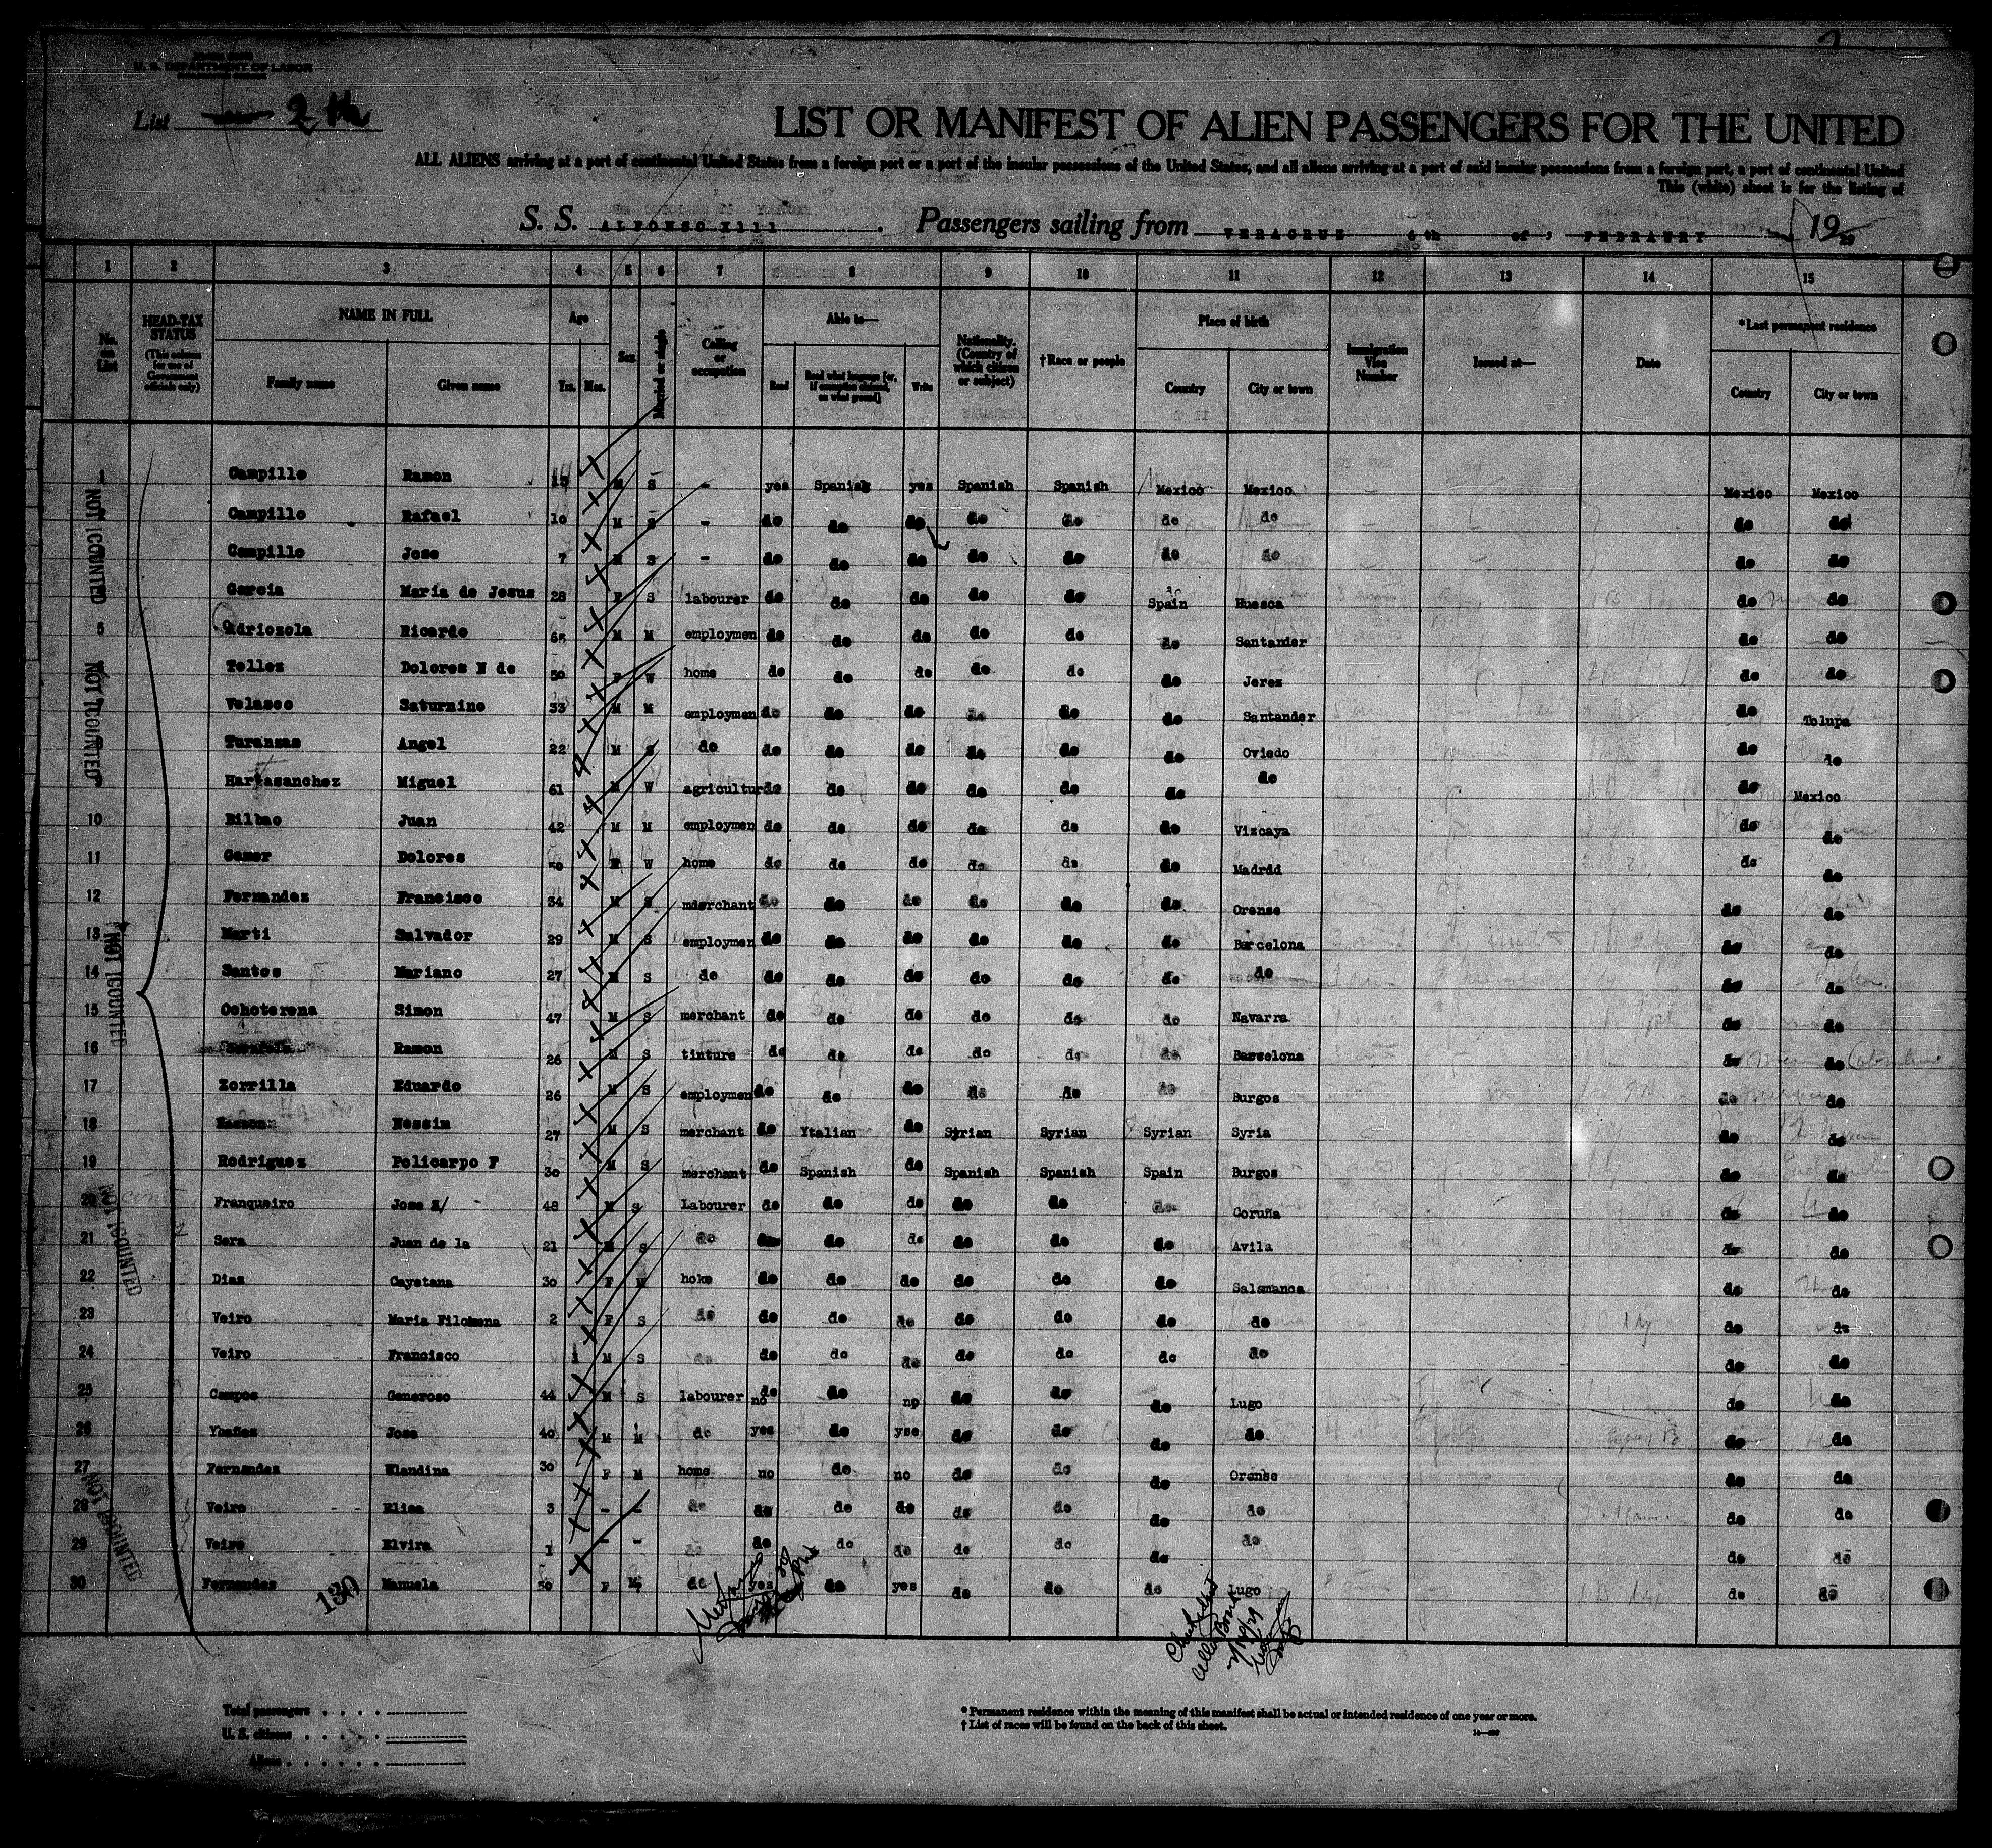 U. S. DEPARTMENT OF LABOR
List 2 th
LIST OR MANIFEST OF ALIEN PASSENGERS FOR THE UNITED
ALL ALIENS arriving at a port of continental United States from a foreign port or a port of the insular possessions of the United States, and all aliens arriving at a port of said insular possessions from a foreign port, a port of continental United
This (white) sheet is for the listing of
S. S. ALFONSO XIII . Passengers sailing from VERACRUZ 6 th of , FEBRAURY 19 29
1 2 3 4 5 6 7 8 9 10 11 12 13 14 15
No. on List HEAD-TAX STATUS (This column for use of Government officials only) NAME IN FULL Family name Given name Age Yrs. Mos. Sex Married or single Calling or occupation Able to— Read Read what language [or, if exemption claimed, on what ground] Write Nationality. (Country of which citizen or subject) †Race or people Place of birth Country City or town Immigration Visa Number Issued at— Date *Last permanent residence Country City or town
1 Campillo Ramon M S - yes Spanish yes Spanish Spanish Mexico Mexico Mexico Mexico
Campillo Rafael 10 M S - do do do do do do do do do
Campillo Jose 7 M S - do do do do do do do do do
Garcia Maria de Jesus 28 F S labourer do do do do do Spain Huesca do do
5 Adriozola Ricardo 65 M M employmen do do do do do do Santander do do
Tellez Dolores N de 50 F W home do do do do do do Jerez do do
Velasco Saturnino 33 M M employmen do do do do do do Santander do Tolupa
Turanzas Angel 22 M S do do do do do do do Oviedo do do
9 Hartasanchez Miguel 61 M W agriculturdo do do do do do do do Mexico
10 Bilbao Juan 42 M M employmen do do do do do do Vizcaya do do
11 Gomer Dolores 50 F W home do do do do do do Madrdd do do
12 Fernandez Francisco 34 M S mderchant do do do do do do Orense do do
13 Marti Salvador 29 M S employmen do do do do do do Barcelona do do
14 Santos Mariano 27 M S do do do do do do do do do do
15 Ochoterena Simon 47 M S merchant do do do do do do Navarra do do
16 Ramon 26 M S tinture do do do do do do Barcelona do do
17 Zorrilla Eduardo 26 M S employmen do do do do do do Burgos do do
18 Nessim 27 M S merchant do Ytalian do Syrian Syrian Syrian Syria do do
19 Rodriguez Policarpo F 30 M S merchant do Spanish do Spanish Spanish Spain Burgos do do
20 Franqueiro Jose 48 M S Labourer do do do do do do Coruña do do
21 Sera Juan de la 21 M S do do do do do do do Avila do do
22 Diaz Cayetana 30 F M home do do do do do do Salamanca do do
23 Veiro Maria Filomena 2 F S do do do do do do do do do do
24 Veiro Francisco 1 M S do do do do do do do do do do
25 Campos Generoso 44 M S labourer do no do no do do do Lugo do do
26 Ybañez Jose 40 M M do yes do yse do do do do do do
27 Fernandez Blandina 30 F M home no do no do do do Orense do do
28 Veiro Elisa 3 - - do do do do do do do do do do
29 Veiro Elvira 1 - - do do do do do do do do do do
30 Fernandez Manuela 50 F do yes do yes do do do Lugo do do
NOT [COUNTED
NOT [COUNTED
NOT [COUNTED
NOT [COUNTED
NOT [COUNTED
130
Total passengers
U. S. citizens
Aliens
* Permanent residence within the meaning of this manifest shall be actual or intended residence of one year or more.
† List of races will be found on the back of this sheet.